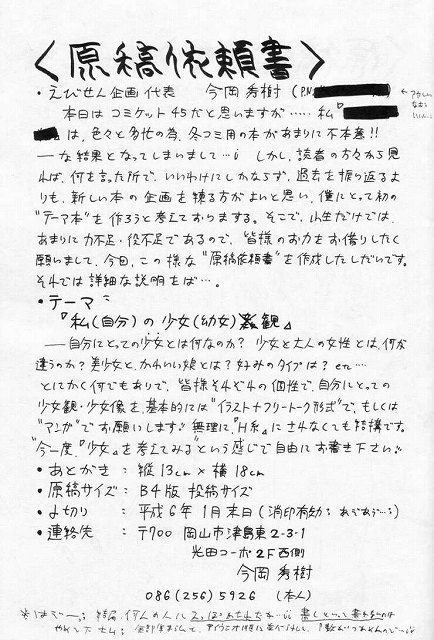 <原稿依頼書>
・えびせん企画 代表 今岡秀樹 (P.N.
本日はコミケット45だと思いますが‥‥‥私『
は、色々と多忙の為、冬コミ用の本があまりに不本意!!
―な結果となってしまいまして…。しかし、読者の方々から見
れば、何を言った所で、いいわけにしかならず、過去を振り返るより
も、新しい本の企画を練る方がよいと思い、僕にとって初の
“テーマ本”を作ろうと考えております。そこで、小生だけでは、
あまりに力不足・役不足であるので、皆様のお力をお借りしたく
願いまして、今回、この様な“原稿依頼書”を作成したしだいです。
それでは詳細な説明をば…。
・テーマ:
『私(自分)の少女(幼女)観』
――自分にとっての少女とは何なのか? 少女と大人の女性とは、何が
違うのか? 美少女と、かわいい娘とは? 好みのタイプは? etc…
とにかく何でもありで、皆様それぞれの個性で、自分にとっての
少女観・少女像を、基本的には“イラスト+フリートーク形式”で、もしくは
“マンガ”でお願いします。無理に『H系』にされなくても結構です。
“今一度、『少女』を考えてみる”という感じで自由にお書き下さい。
・あとがき : 縦13cm×横18cm
・原稿サイズ : B4版 投稿サイズ
・〆切り : 平成6年1月末日(消印有効:
・連絡先 : 〒700 岡山市津島東2-3-1
光田コーポ2F西側
今岡秀樹
086(256)5926 (本人)